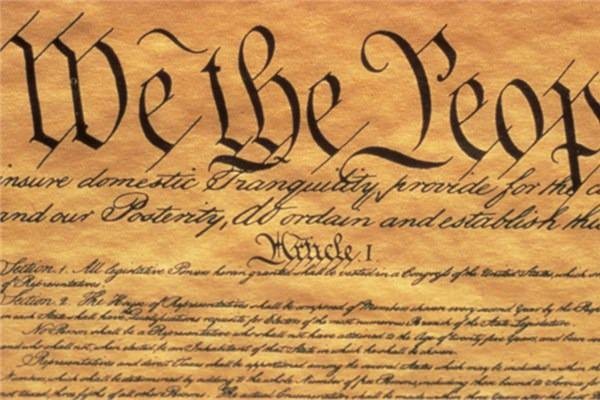 We the Peop
insure domestic Tranquility, provide for the
and our Posterity, do ordain and establish this
Article. I.
Section. 1. All legislative Powers herein granted shall be vested in a Congress of the United States, which
of Representatives.
Section. 2. The House of Representatives shall be composed of Members chosen every second Year by the People
in each State shall have Qualifications requisite for Electors of the most numerous Branch of the State Legislature.
No Person shall be a Representative who shall not have attained to the Age of twenty five Years, and been
and who shall not, when elected, be an Inhabitant of that State in which he shall be chosen.
Representatives and direct Taxes shall be apportioned among the several States which may be included within
Numbers, which shall be determined by adding to the whole Number of free Persons, including those bound to Service for
not taxed, three fifths of all other Persons. The actual Enumeration shall be made within three Years after the first